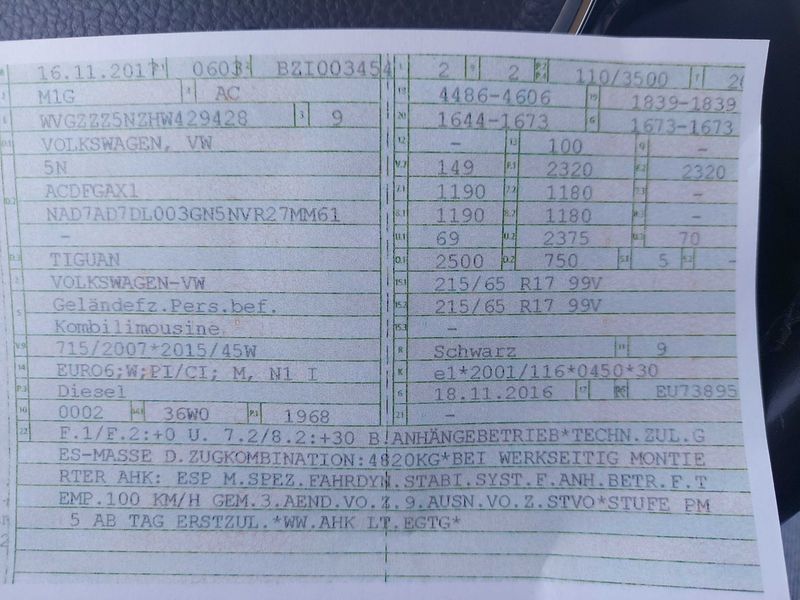 16.11.2017 0603 BZI003454 2 2 110/3500
M1G AC 4486-4606 1839-1839
WVGZZZ5NZHW429428 3 9 1644-1673 1673-1673
VOLKSWAGEN, VW - 100 -
5N 149 2320 2320
ACDFGAX1 1190 1180 -
NAD7AD7DL003GN5NVR27MM61 1190 1180 -
- 69 2375 70
TIGUAN 2500 750 5 -
VOLKSWAGEN-VW 215/65 R17 99V
Geländefz.Pers.bef. 215/65 R17 99V
Kombilimousine -
715/2007*2015/45W Schwarz 9
EURO6;W;PI/CI; M, N1 I e1*2001/116*0450*30
Diesel 18.11.2016 EU73895
0002 36W0 1968 -
F.1/F.2:+0 U. 7.2/8.2:+30 B.ANHÄNGEBETRIEB*TECHN.ZUL.G
ES-MASSE D.ZUGKOMBINATION:4820KG*BEI WERKSEITIG MONTIE
RTER AHK: ESP M.SPEZ.FAHRDYN.STABI.SYST.F.ANH.BETR.F.T
EMP.100 KM/H GEM.3.AEND.VO.Z.9.AUSN.VO.Z.STVO*STUFE PM
5 AB TAG ERSTZUL.*WW.AHK LT.EGTG*